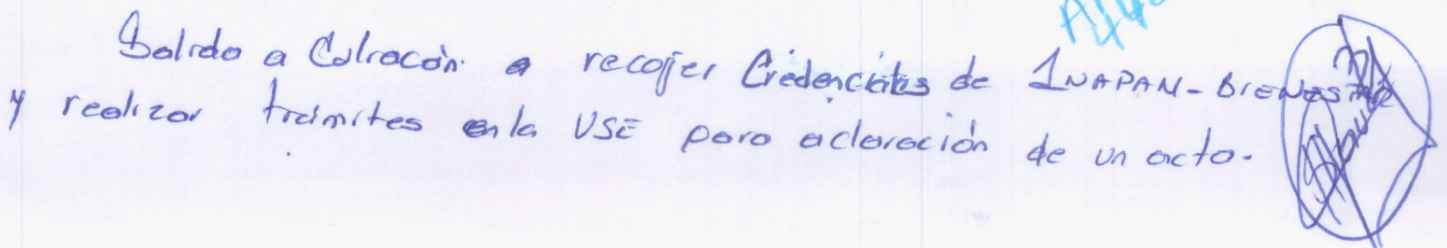 Salida a Culiacán a recojer Credenciales de INAPAN-BIENESTAR
y realizar trámites en la USE para aclaración de un acto.